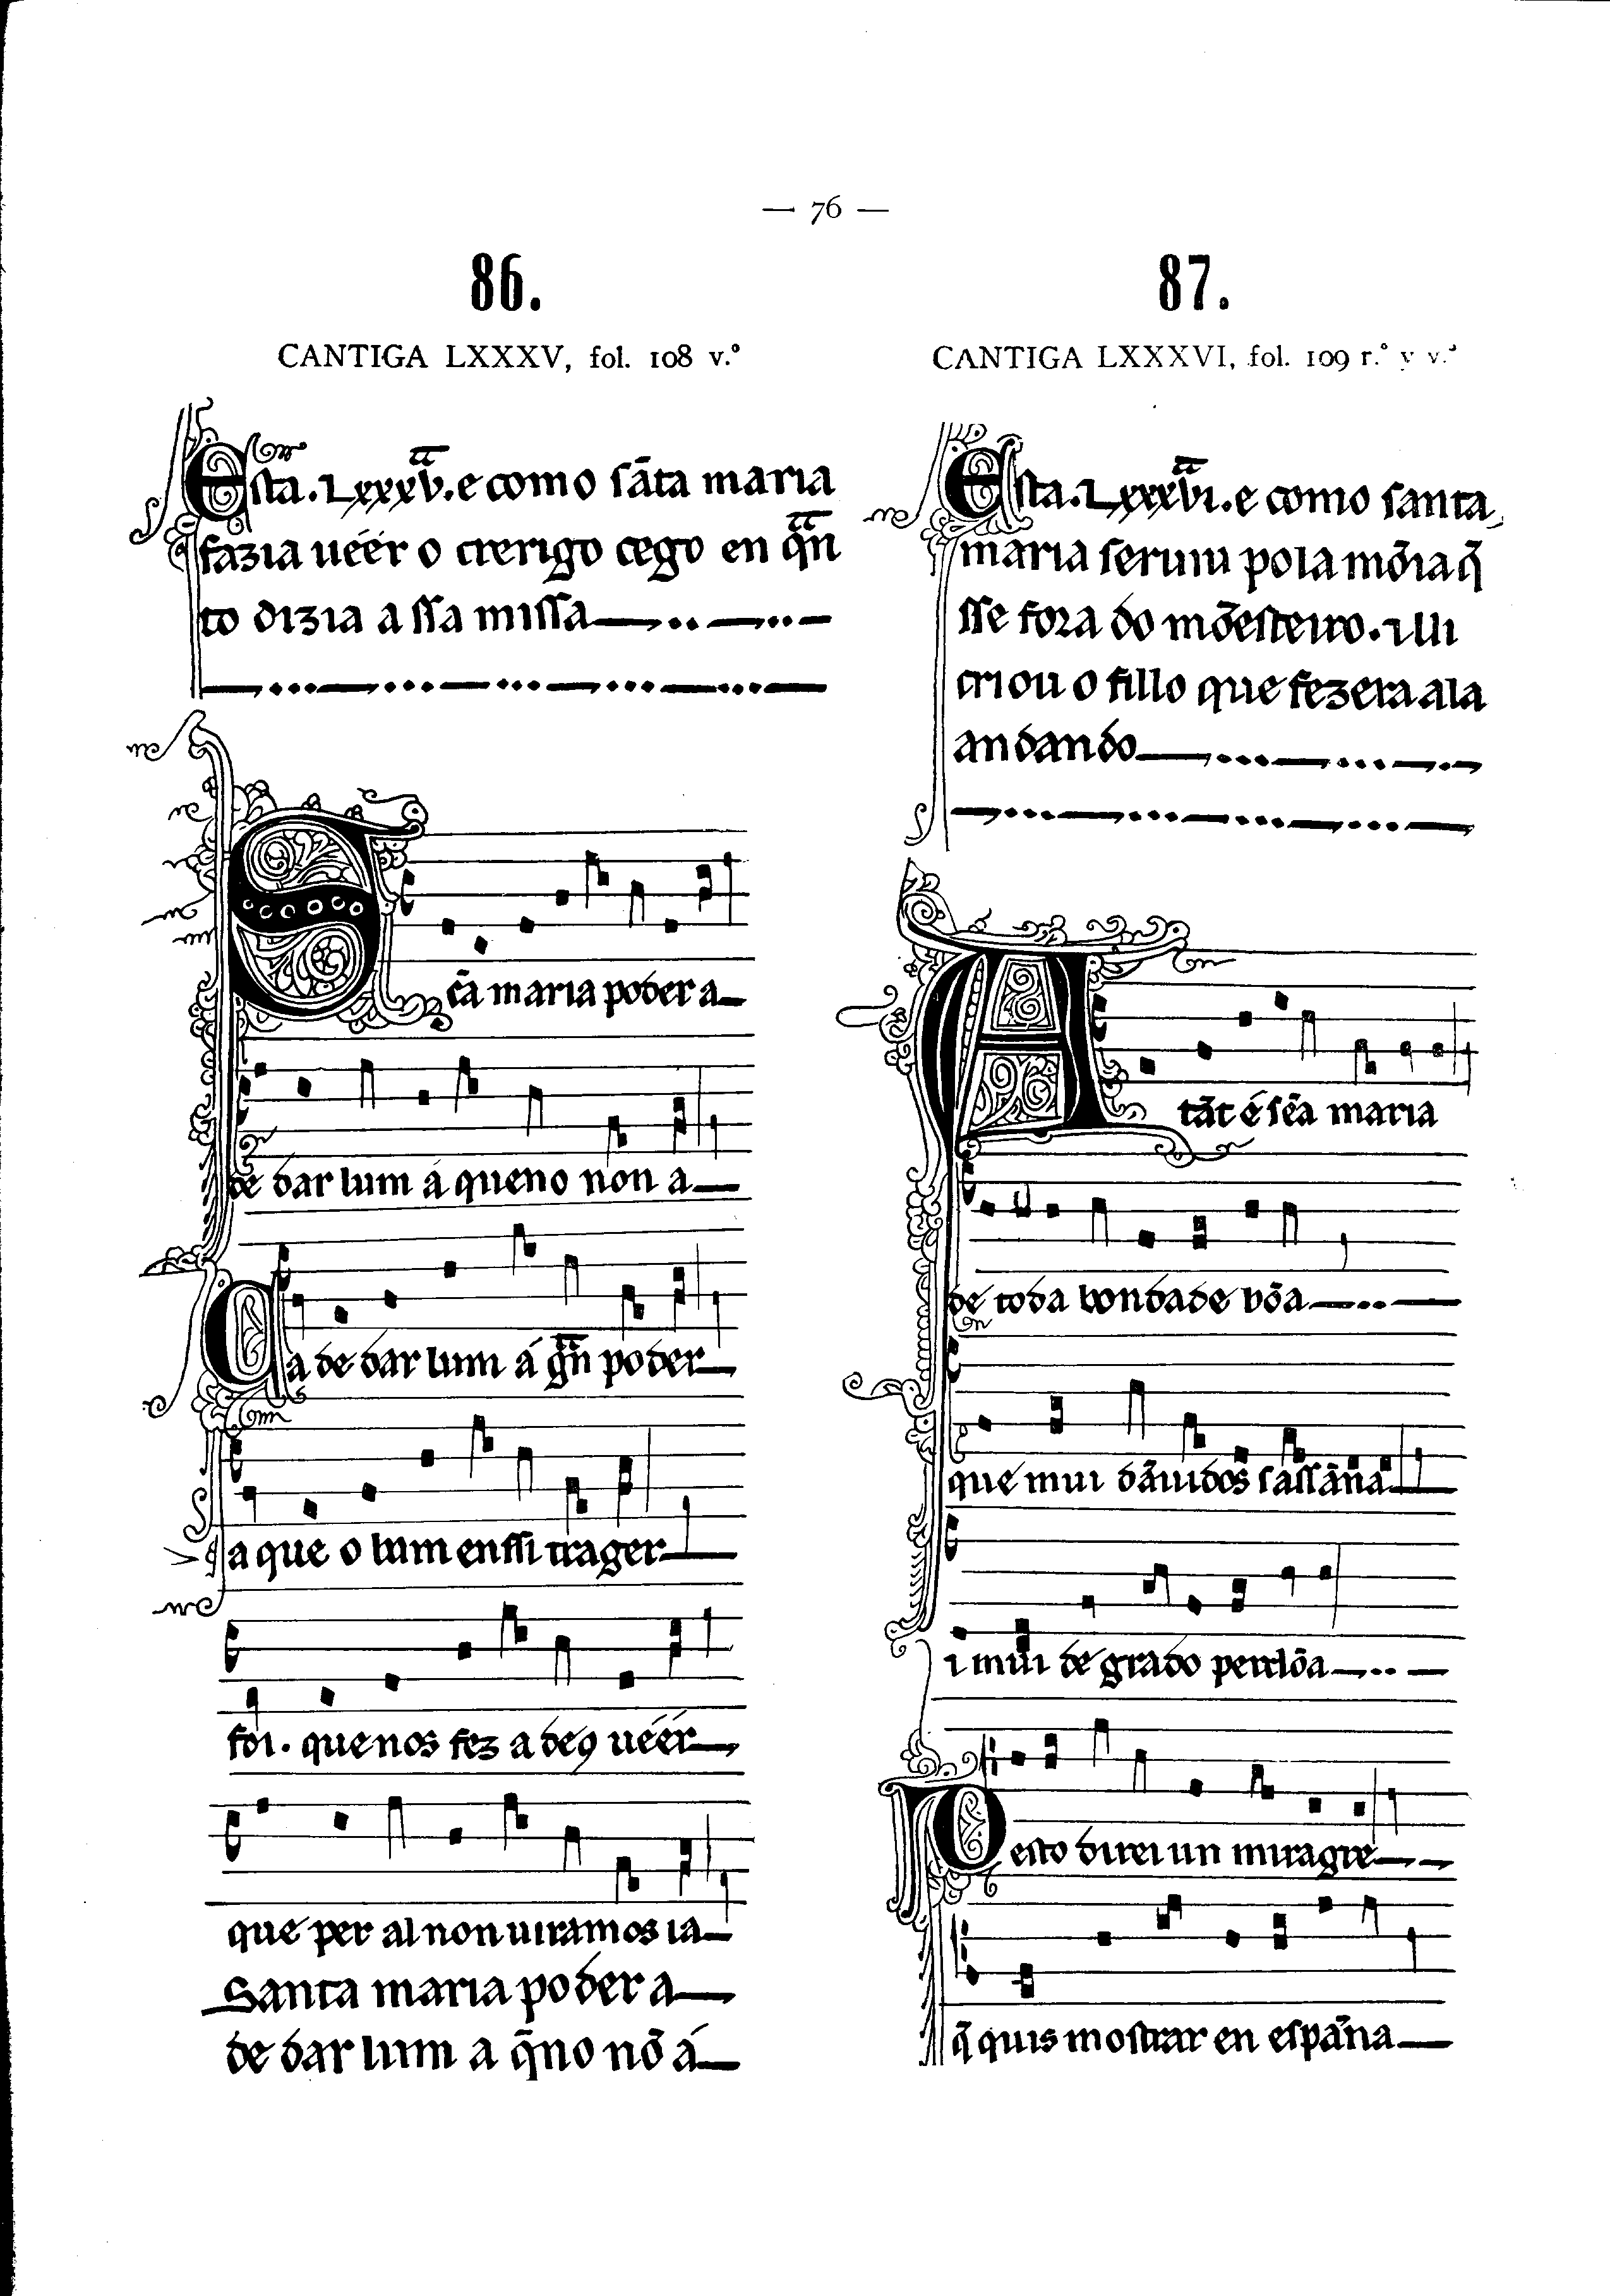 — 76 —
86.
CANTIGA LXXXV, fol. 108 v.º
Esta. Lxxxvª. e como sãta maria
fazia uéér o crerigo cego en qªn
to dizia a ssa missa
Sc̃a maria poder a
de dar lum á queno non a
Ca de dar lum á gª̃n poder
a que o lum enssi trager
foi. que nos fez a deꝯ uéér
que per al non uiramos ia
Santa maria poder a
de dar lum a q̃no nõ á
87.
CANTIGA LXXXVI, fol. 109 r.º y v.º
Esta. Lxxxviª. e como santa
maria seruiu pola mõia q̃
sse fora do mõesteiro. ⁊lli
criou o fillo que fezera ala
andando
Atãt é sc̃a maria
de toda bondade bõa
que mui dãuidos sassãna
⁊ mui de grado perdõa
Desto direi un miragre
q̃ quis mostrar en espãna